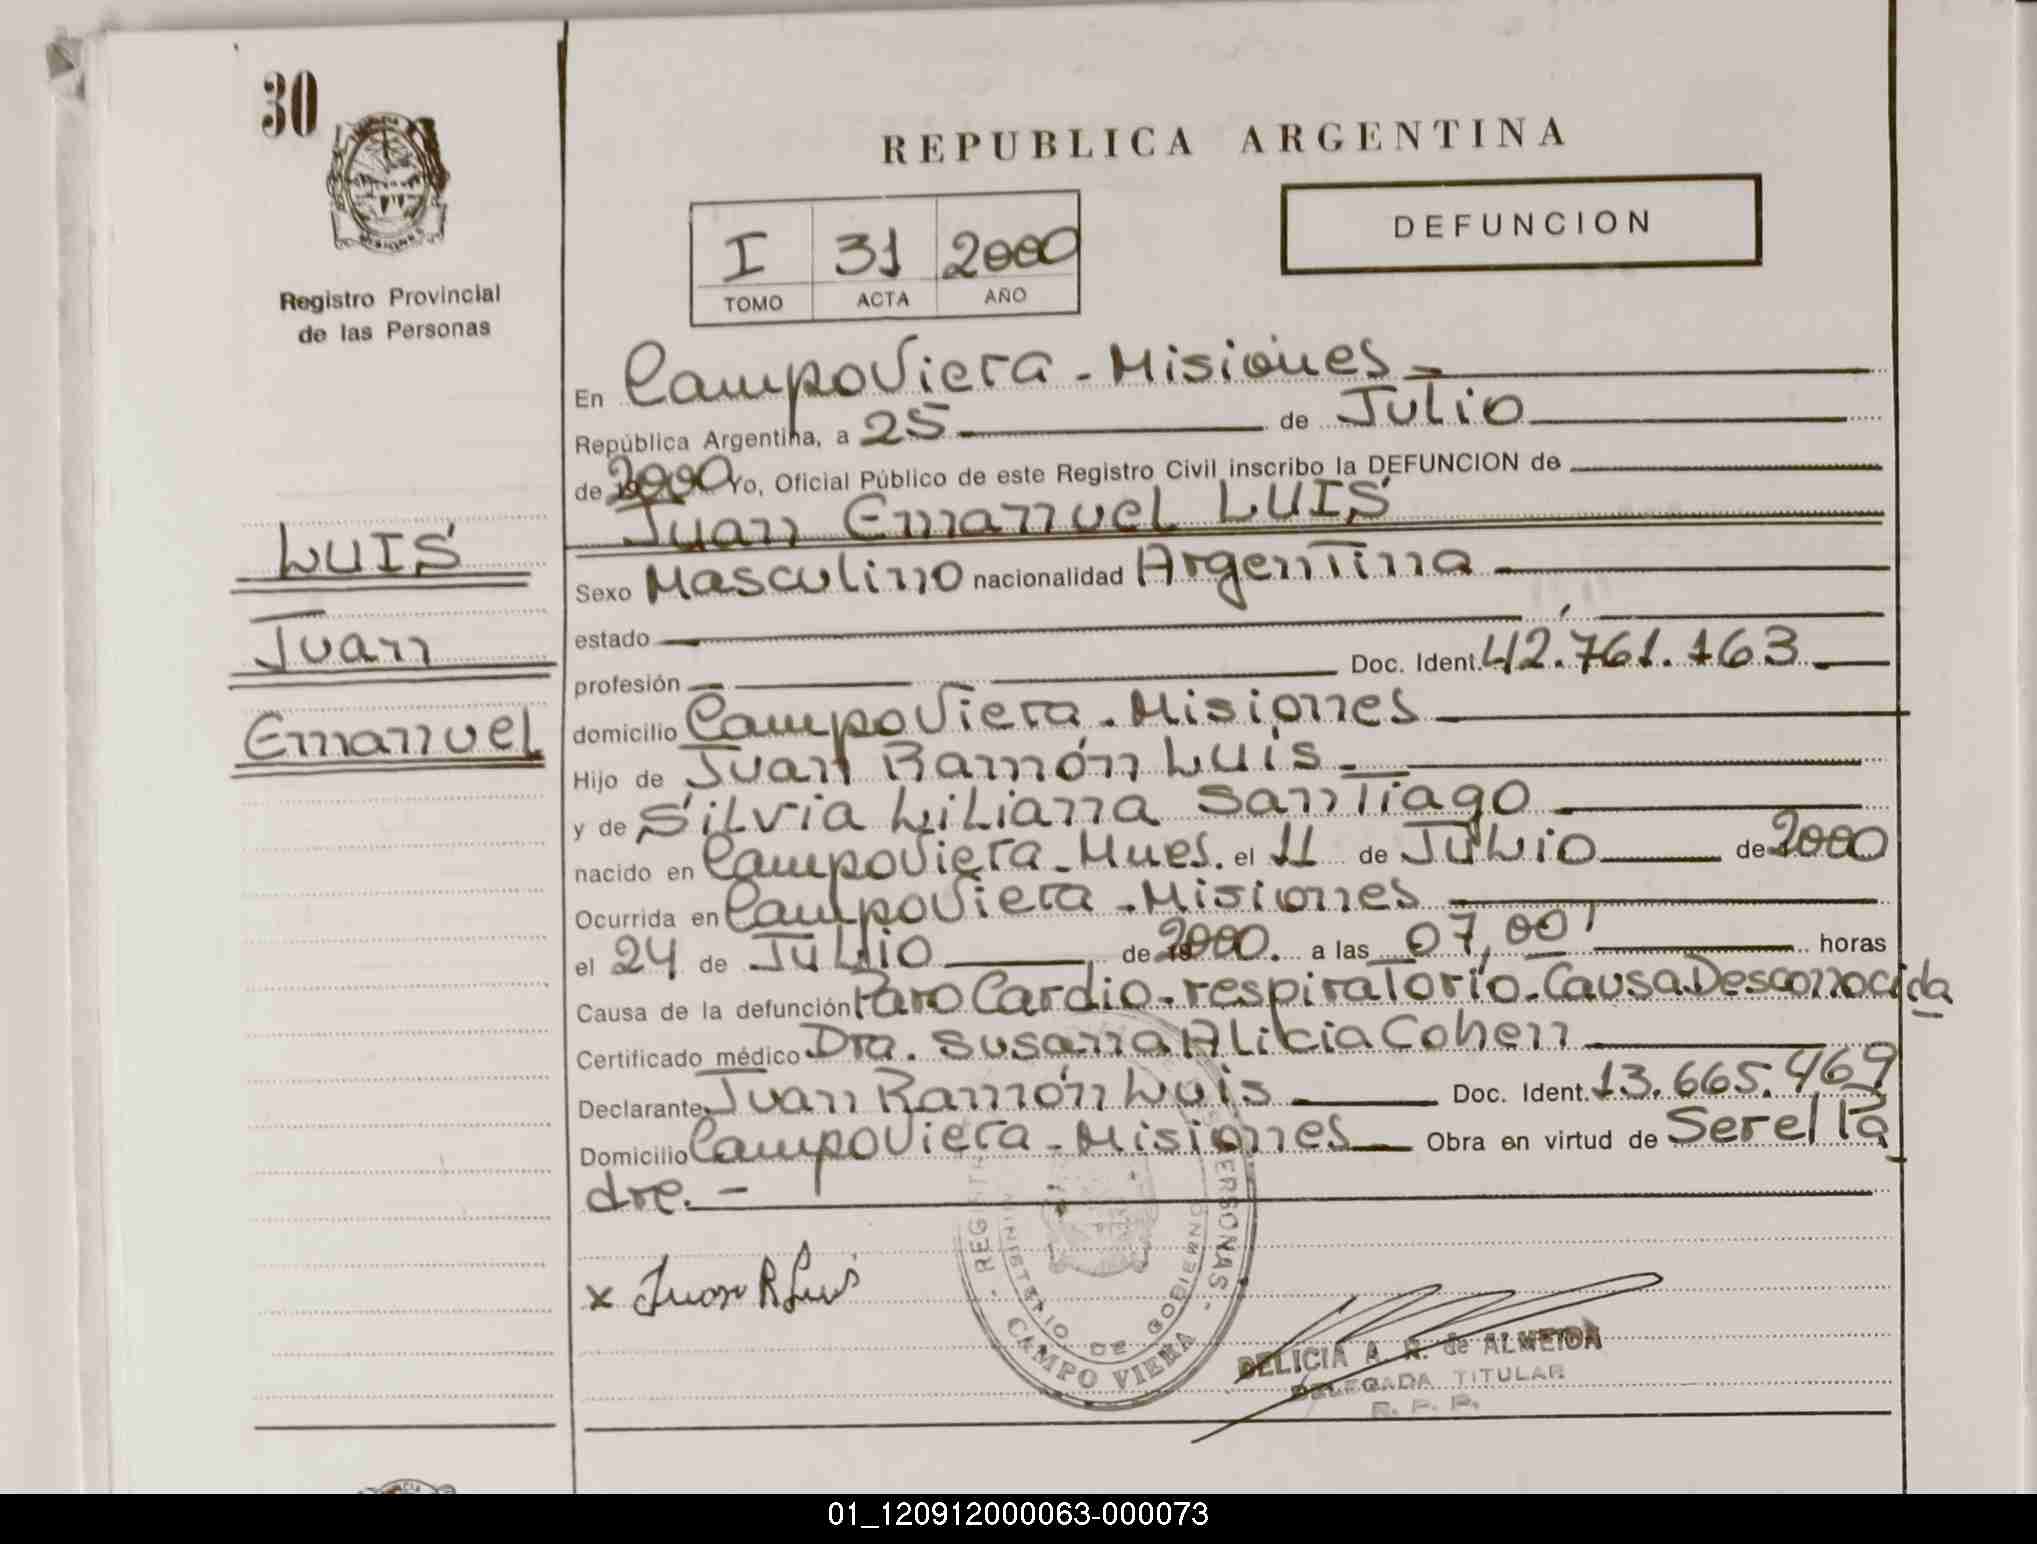 30
REPUBLICA ARGENTINA
I 31 2000
TOMO ACTA AÑO
DEFUNCION
Registro Provincial
de las Personas
LUIS
Juan
Emanuel
En CampoViera - Misiones -
República Argentina, a 25 de Julio
de 2000 Yo, Oficial Público de este Registro Civil inscribo la DEFUNCION de
Juan Emanuel LUIS
Sexo Masculino nacionalidad Argentina
estado
profesión Doc. Ident. 42.761.163
domicilio CampoViera - Misiones
Hijo de Juan Ramón Luis
y de Silvia Liliana Santiago
nacido en CampoViera - Mnes. el 11 de Julio de 2000
Ocurrida en CampoViera - Misiones
el 24 de Julio de 2000. a las 07,00' horas
Causa de la defunción Paro Cardio-respiratorio. Causa Desconocida
Certificado médico Dra. Susana Alicia Cohen
Declarante Juan Ramón Luis Doc. Ident. 13.665.469
Domicilio CampoViera - Misiones Obra en virtud de Ser el Pa
dre. -
x Juan R Luis
MINISTERIO DE GOBIERNO
CAMPO VIERA
DELICIA A. R. de ALMEIDA
DELEGADA TITULAR
R. P. P.
01_120912000063-000073